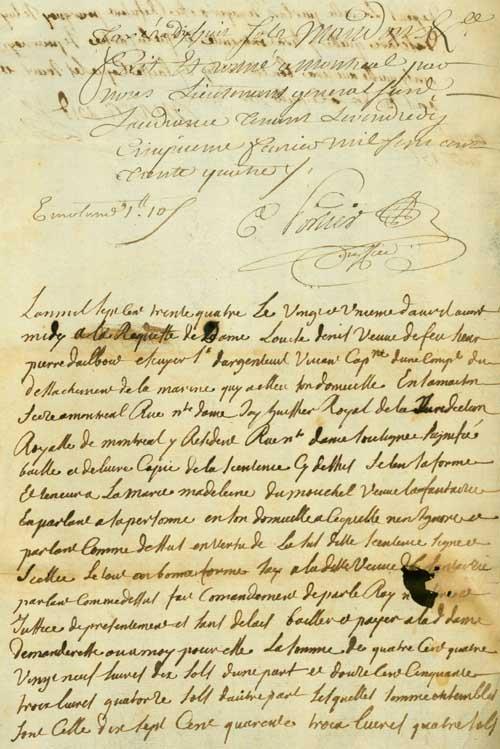 fait et donné a montreal par
nous Lieutenant general Susd
Laudiance tenant Levendredy
Cinquieme fevrier mil sept cent
trente quatre
Lan mil sept Cent trente quatre Le vingt et unieme davril avant
midy a la Requette de Dame Louise denis Veuve de feu
pierre dailbou escuyer Sr dargenteuil vivant Capne dune Compe du
destachement de la marine quy a elleu son domicille En sa maison
Scize a montreal Rue nte dame Jay huissier Royal de la Jurisdiction
Royalle de montreal y Resident Rue nte dame soussigné Signifié
baillé et delivré Copie de la Sentence Cy dessus Selon sa forme
Et teneur a La marie madelaine du mouchel Veuve
En parlant a sa personne en son domicille a Cequelle nen Ignore et
parlant Comme dessus en vertu de La Sus ditte Sentence Signée
Scellée Et en bonne forme Jay a la ditte Veuve
parlant Comme dessus fait Comandement de par le Roy
Justice de presentement et sans delais bailler et payer a la d dame
demanderette ou a moy pour elle La somme de quatre Cent quatre
Vingt neuf livres dix sols dune part et douze Cent Cinquante
trois livres quatorze sols dautre part Lesquelles sommes ensembles
font Celle dix Sept Cent quarente trois livres quatre sols